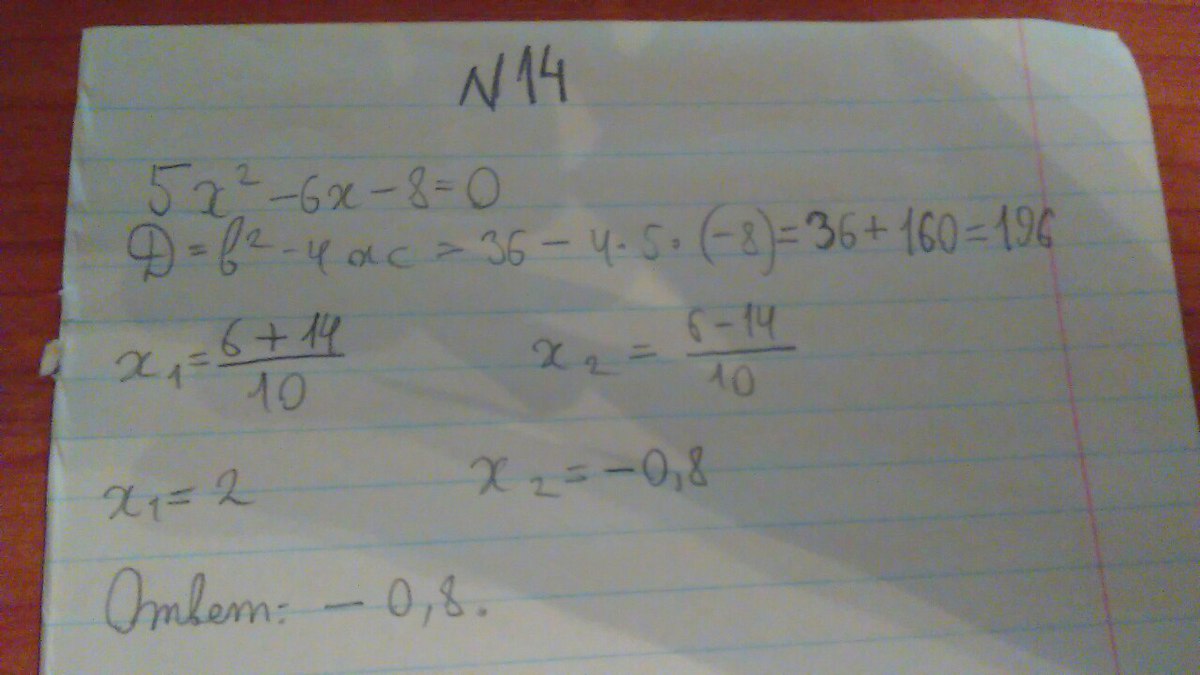 N14
5x² - 6x - 8 = 0
D = b² - 4ac = 36 - 4·5·(-8) = 36 + 160 = 196
x₁ = (6 + 14)/10 x₂ = (6 - 14)/10
x₁ = 2 x₂ = -0,8
Ответ: - 0,8.